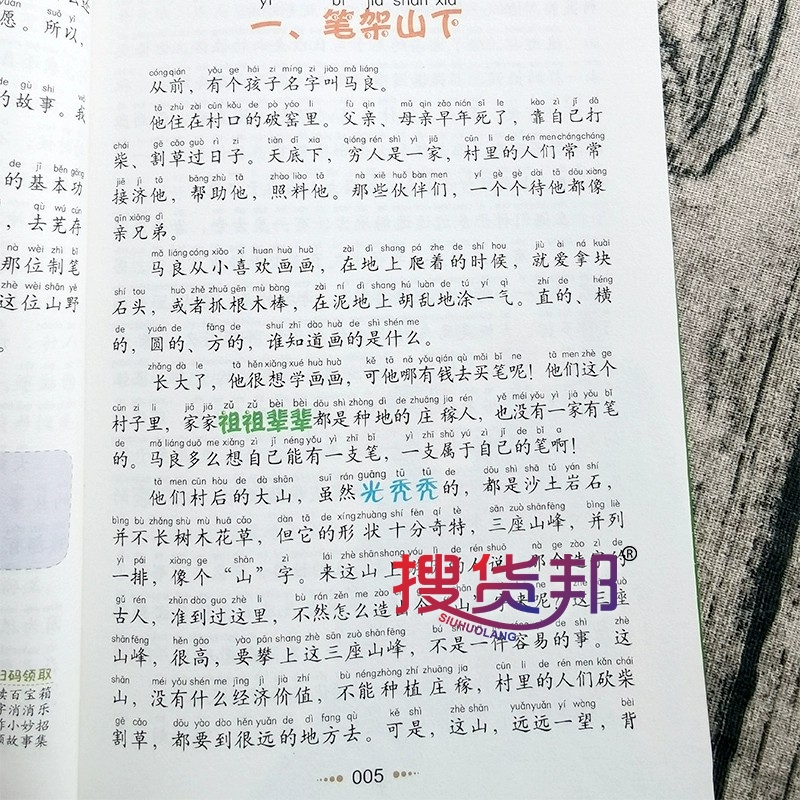 愿。所以,
的故事。我
的基本功
,去芜存
那位制笔
这位山野
。
扫码领取
读百宝箱
字消消乐
作小妙招
频故事集
一、笔架山下
cóngqián yǒu ge hái zi míng zi jiào mǎ liáng
从前,有个孩子名字叫马良。
tā zhù zài cūn kǒu de pò yáo li fù qīn mǔ qīn zǎo nián sǐ le kào zì jǐ dǎ
他住在村口的破窑里。父亲、母亲早年死了,靠自己打
chái gē cǎo guò rì zi tiān dǐ xia qióng rén shì yì jiā cūn li de rén men chángcháng
柴、割草过日子。天底下,穷人是一家,村里的人们常常
jiē jì tā bāng zhù tā zhào liào tā nà xiē huǒ bàn men yí gè gè dài tā dōu xiàng
接济他,帮助他,照料他。那些伙伴们,一个个待他都像
qīn xiōng dì
亲兄弟。
mǎ liáng cóng xiǎo xǐ huan huà huà zài dì shang pá zhe de shí hou jiù ài ná kuài
马良从小喜欢画画,在地上爬着的时候,就爱拿块
shí tou huò zhě zhuā gēn mù bàng zài ní dì shang hú luàn de tú yí qì zhí de héng
石头,或者抓根木棒,在泥地上胡乱地涂一气。直的、横
de yuán de fāng de shuí zhī dào huà de shì shén me
的,圆的、方的,谁知道画的是什么。
zhǎng dà le tā hěn xiǎng xué huà huà kě tā nǎ yǒu qián qù mǎi bǐ ne tā men zhè ge
长大了,他很想学画画,可他哪有钱去买笔呢!他们这个
cūn zi li jiā jiā zǔ zǔ bèi bèi dōu shì zhòng dì de zhuāng jia rén yě méi yǒu yì jiā yǒu bǐ
村子里,家家祖祖辈辈都是种地的庄稼人,也没有一家有笔
de mǎ liáng duō me xiǎng zì jǐ néng yǒu yì zhī bǐ yì zhī shǔ yú zì jǐ de bǐ a
的。马良多么想自己能有一支笔,一支属于自己的笔啊!
tā men cūn hòu de dà shān suī rán guāng tū tū de dōu shì shā tǔ yán shí
他们村后的大山,虽然光秃秃的,都是沙土岩石,
bìng bù zhǎng shù mù huā cǎo dàn tā de xíng zhuàng shí fēn qí tè sān zuò shān fēng bìng liè
并不长树木花草,但它的形状十分奇特,三座山峰,并列
yì pái xiàng ge shān zì lái zhè shān shang yóu
一排,像个“山”字。来这山上
gǔ rén zhǔn dào guo zhè li bù rán zěn me zào
古人,准到过这里,不然怎么造
shān fēng hěn gāo yào pān shang zhè sān zuò shān fēng bú shì de shì zhè
山峰,很高,要攀上这三座山峰,不是一件容易的事。这
shān méi yǒu shén me jīng jì jià zhí bù néng zhòng zhí zhuāng jia cūn li de rén men kǎn chái
山,没有什么经济价值,不能种植庄稼,村里的人们砍柴
gē cǎo dōu yào dào hěn yuǎn de dì fang qù kě shì zhè shān yuǎn yuǎn yí wàng bèi
割草,都要到很远的地方去。可是,这山,远远一望,背
搜货邦®
SIUHUOLANG
005